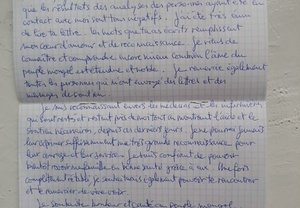 que les résultats des analyses des personnes ayant été en
contact avec moi sont tous négatifs. J'ai été très ému
de lire ta lettre. Les mots que tu as écrits remplissent
mon cœur d'amour et de reconnaissance. Je viens de
connaître et comprendre encore mieux combien l'âme du
peuple mongol est tendre et noble. Je remercie également
toutes les personnes qui m'ont envoyé des lettres et des
messages de soutien.
Je suis reconnaissant envers les médecins et les infirmières
qui sont restés et restent près de moi tout en montrant l'aide et le
soutien nécessaires, depuis ces derniers jours. Je ne pourrai jamais
leur exprimer suffisamment ma très grande reconnaissance pour
leur courage et leur service. Je suis confiant de pouvoir
bientôt en bonne santé grâce à eux. Une fois
complètement rétabli je souhaite également pouvoir te rencontrer
et te remercier de vive voix.
Je souhaite bonheur et santé au peuple mongol